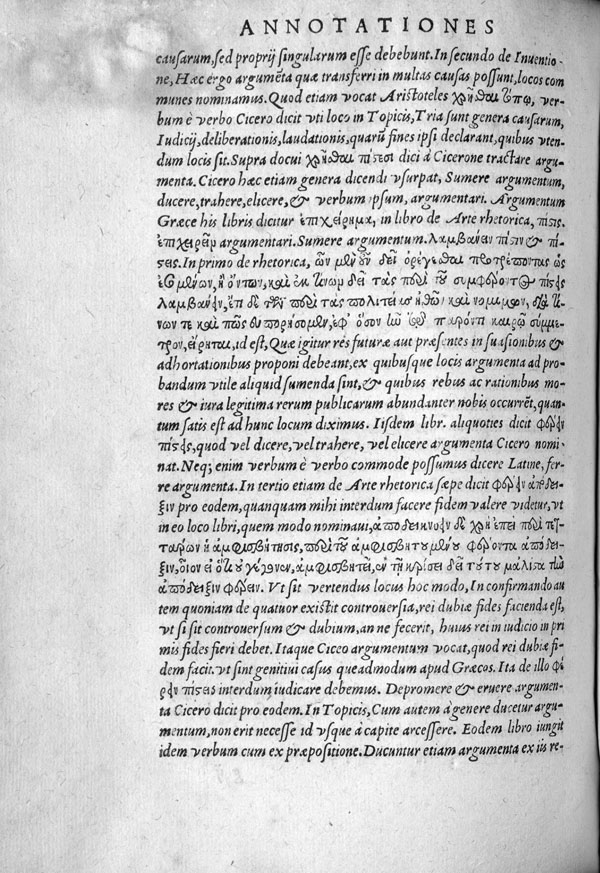 ANNOTATIONES
causarum, sed proprij singularum esse debebunt. In secundo de Inuentio-
ne, Hæc ergo argumēta quæ transferri in multas causas possunt, locos com
munes nominamus. Quod etiam vocat Aristoteles χρῆσθαι τόπῳ, ver-
bum è verbo Cicero dicit vti loco in Topicis, Tria sunt genera causarum,
Iudicij, deliberationis, laudationis, quarū fines ipsi declarant, quibus vten-
dum locis sit. Supra docui χρῆσθαι πίστεσι dici à Cicerone tractare argu-
menta. Cicero hæc etiam genera dicendi vsurpat, Sumere argumentum,
ducere, trahere, elicere, & verbum ipsum, argumentari. Argumentum
Græce his libris dicitur ἐπιχείρημα, in libro de Arte rhetorica, πίστις.
ἐπιχειρεῖν argumentari. Sumere argumentum. λαμβάνειν πίστιν & πί-
στεις. In primo de rhetorica, ὧν μὲν οὖν δεῖ ὀρέγεσθαι προτρέποντας ὡς
ἐσομένων, ἢ ὄντων, καὶ ἐκ τίνων δεῖ τὰς περὶ τοῦ συμφέροντος πίστεις
λαμβάνειν, ἔτι δὲ περὶ τὰς πολιτείας ἤθων καὶ νομίμων, διὰ τί-
νων τε καὶ πῶς εὐπορήσομεν, ἐφ' ὅσον ἦν τῷ παρόντι καιρῷ σύμμε-
τρον, εἴρηται, id est, Quæ igitur res futuræ aut præsentes in suasionibus &
adhortationibus proponi debeant, ex quibusque locis argumenta ad pro-
bandum vtile aliquid sumenda sint, & quibus rebus ac rationibus mo-
res & iura legitima rerum publicarum abundanter nobis occurrēt, quan-
tum satis est ad hunc locum diximus. Iisdem libr. aliquoties dicit φέρειν
πίστεις, quod vel dicere, vel trahere, vel elicere argumenta Cicero nomi-
nat. Neq; enim verbum è verbo commode possumus dicere Latine, fer-
re argumenta. In tertio etiam de Arte rhetorica sæpe dicit φέρειν ἀπόδει-
ξιν pro eodem, quanquam mihi interdum facere fidem valere videtur, vt
in eo loco libri, quem modo nominaui, ἀποδεικνύειν δὲ χρὴ ἐπεὶ περὶ τετ-
τάρων ἡ ἀμφισβήτησις, περὶ τοῦ ἀμφισβητουμένου φέροντα ἀπόδει-
ξιν, οἷον εἰ ὅτι οὐ γέγονεν, ἀμφισβητεῖ, ἐν τῇ κρίσει δεῖ τούτου μάλιστα τὴν
ἀπόδειξιν φέρειν. Vt sit vertendus locus hoc modo, In confirmando au
tem quoniam de quatuor existit controuersia, rei dubiæ fides facienda est,
vt si sit controuersum & dubium, an ne fecerit, huius rei in iudicio in pri
mis fides fieri debet. Itaque Ciceo argumentum vocat, quod rei dubiæ fi-
dem facit. vt sint genitiui casus queadmodum apud Græcos. Ita de illo φέ
ρειν πίστεις interdum iudicare debemus. Depromere & eruere argumen-
ta Cicero dicit pro eodem. In Topicis, Cum autem à genere ducetur argu-
mentum, non erit necesse id vsque à capite arcessere. Eodem libro iungit
idem verbum cum ex præpositione. Ducuntur etiam argumenta ex iis re-